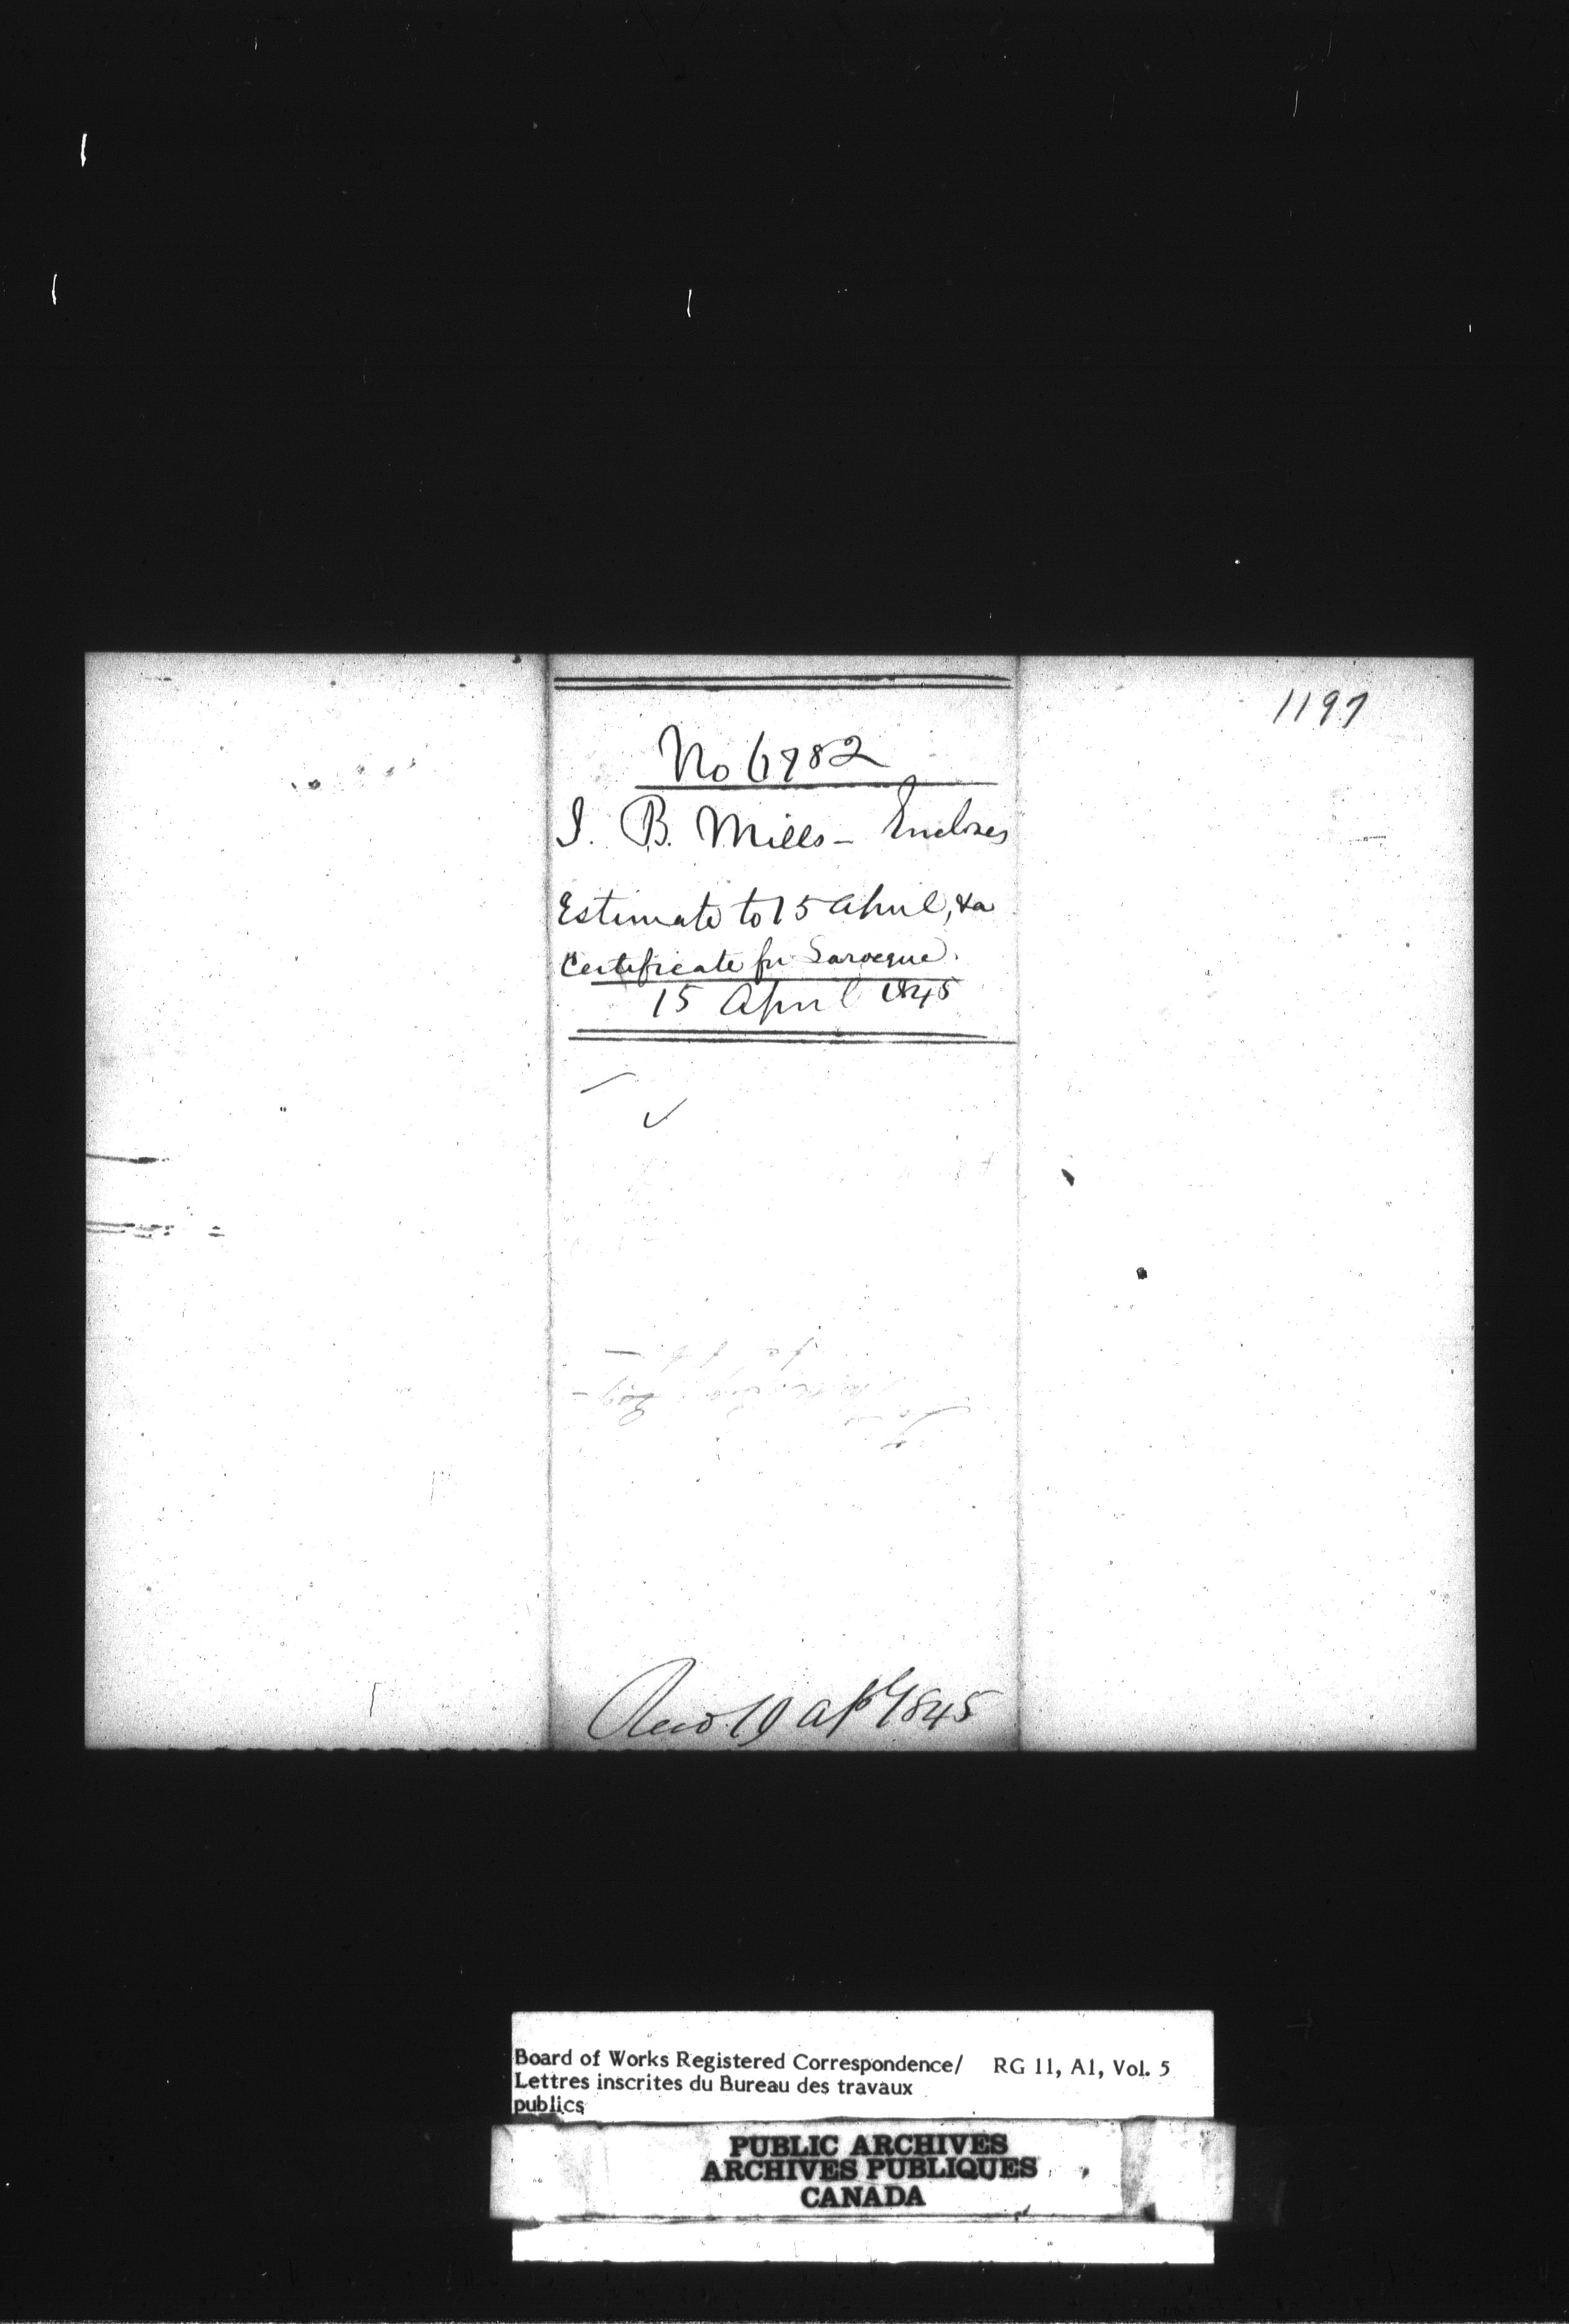 1197
No 6782
J. B. Mills - Encloses
Estimate to 15 April, & a
Certificate for Larocque.
15 April 1845
Recd. 19 Apl 1845
Board of Works Registered Correspondence/ RG 11, A1, Vol. 5
Lettres inscrites du Bureau des travaux
publics
PUBLIC ARCHIVES
ARCHIVES PUBLIQUES
CANADA